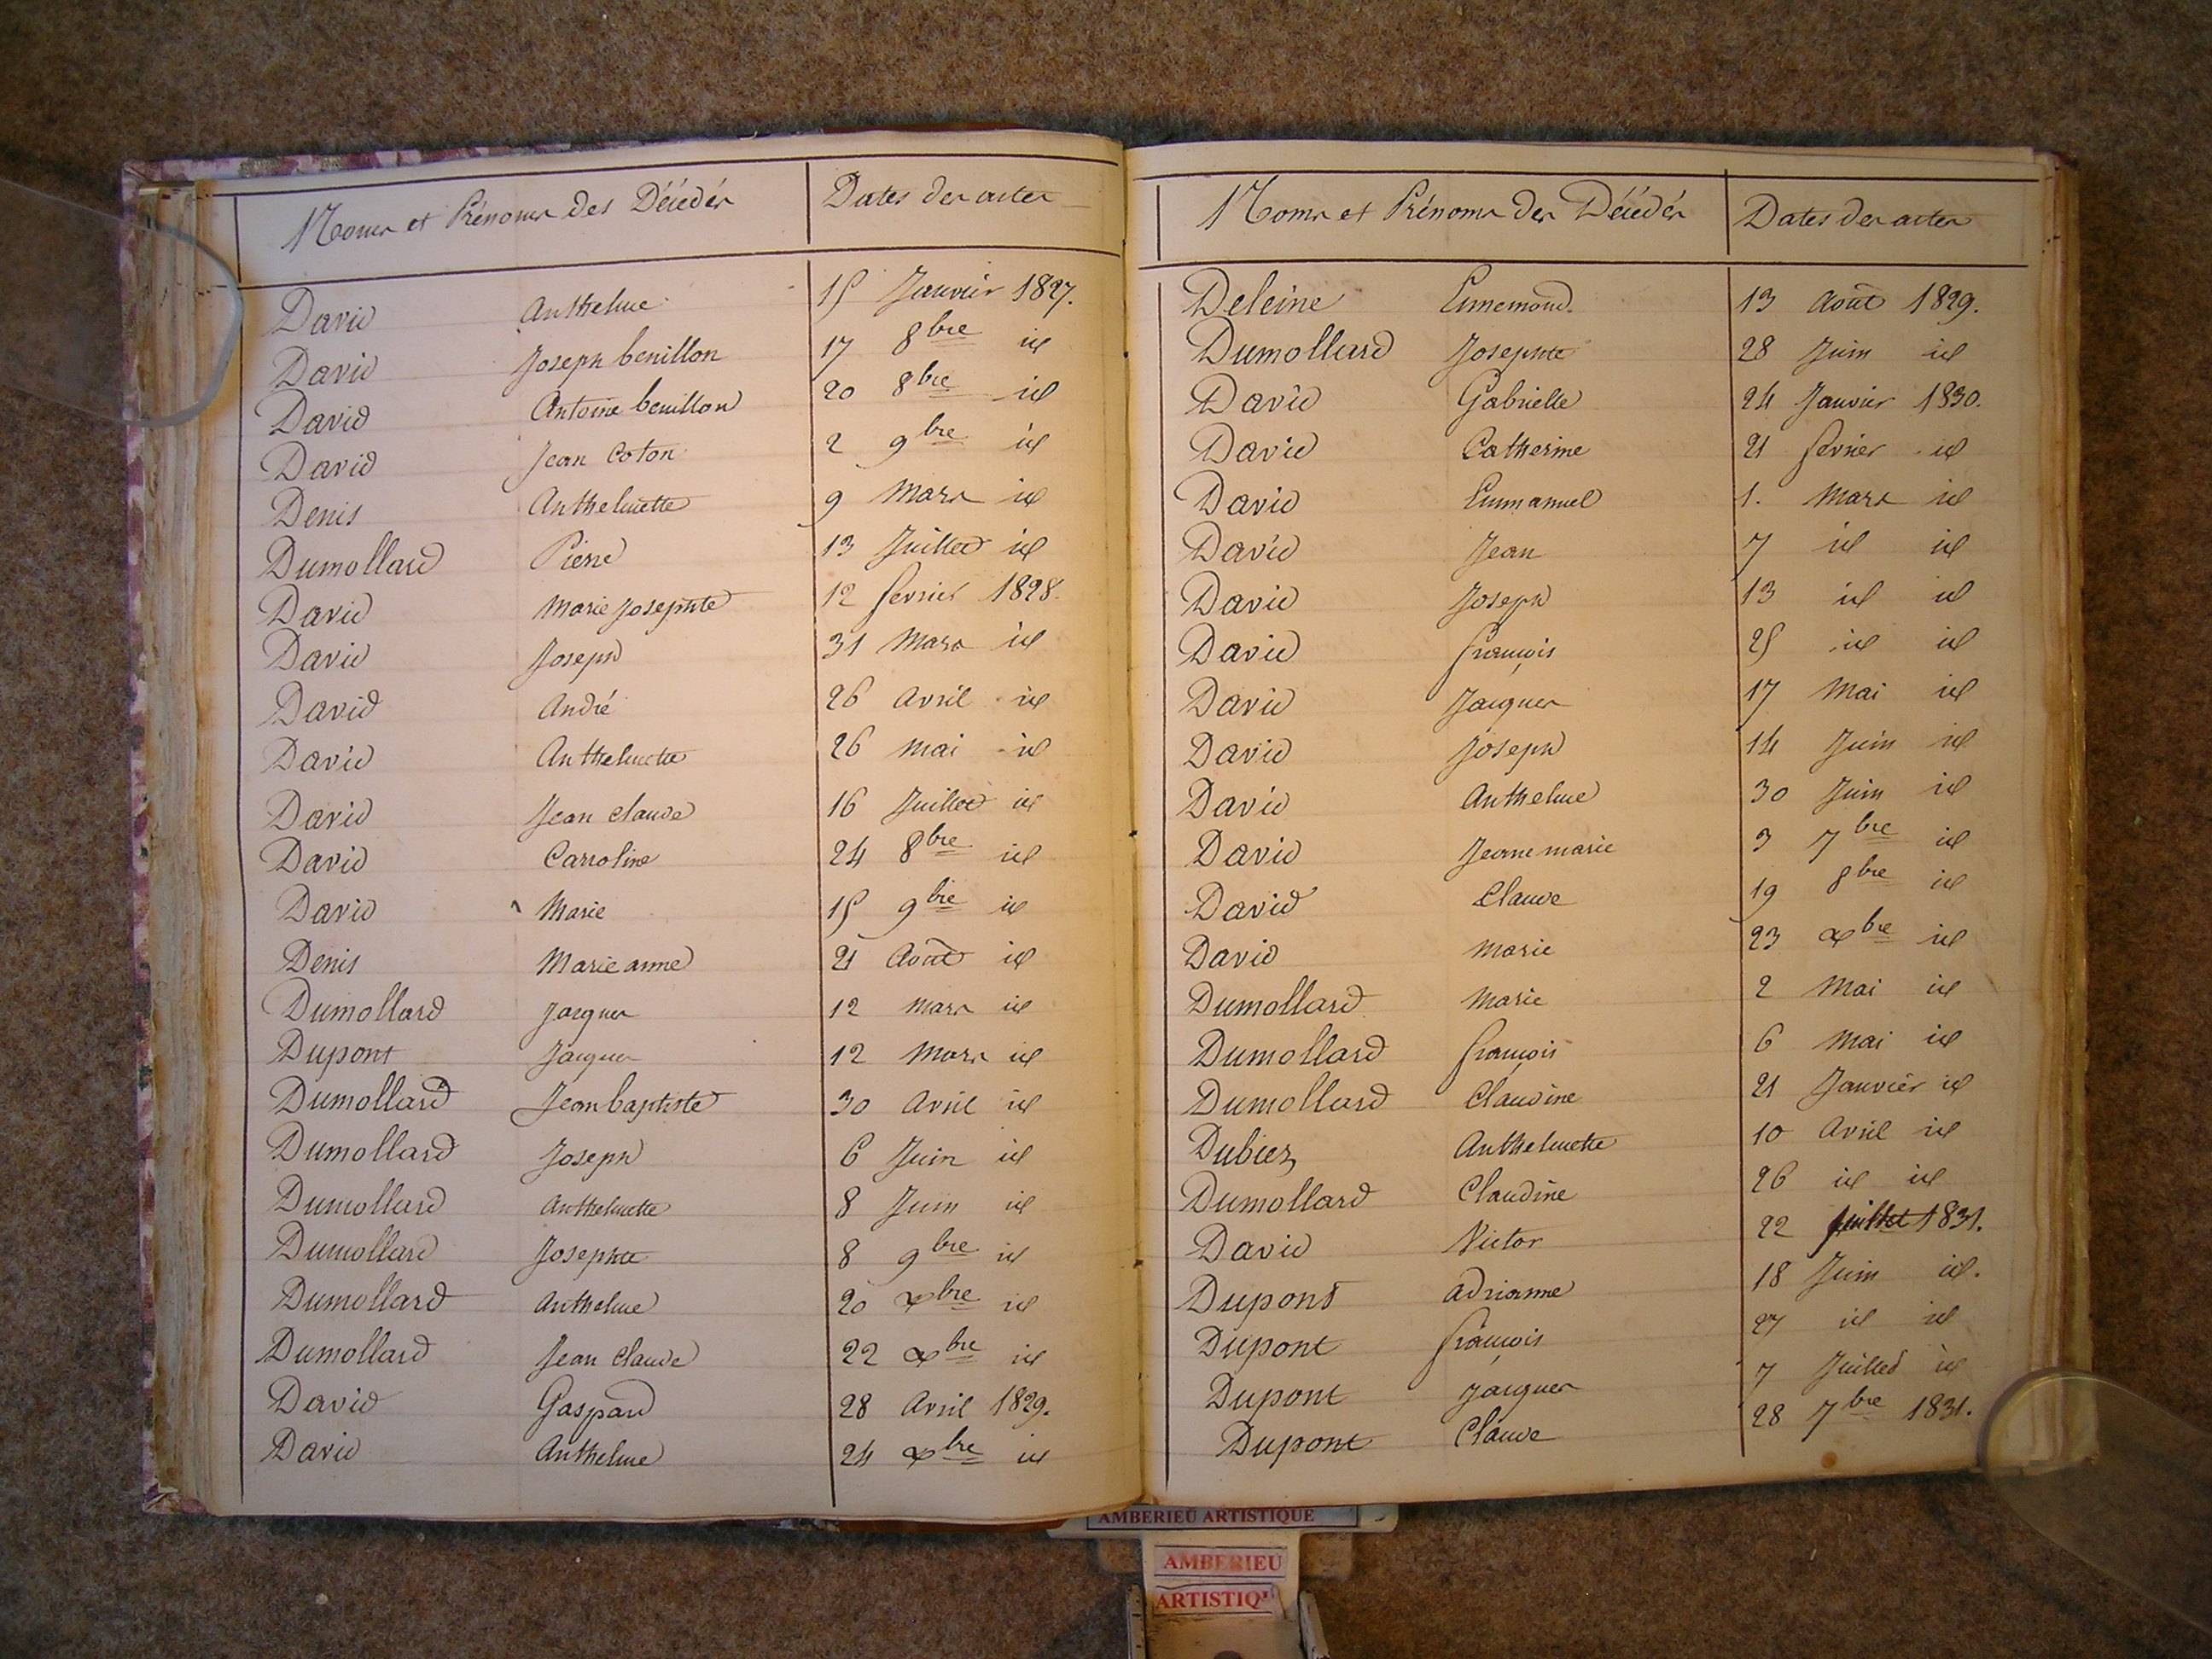 Noms et Prénoms des Décédés Dates des actes
David Anthelme 15 Janvier 1827.
David Joseph benillon 17 8bre id
David Antoine benillon 20 8bre id
David Jean Coton 2 9bre id
Denis Anthelmette 9 Mars id
Dumollard Pierre 13 Juillet id
David Marie Josephte 12 fevrier 1828.
David Joseph 31 Mars id
David André 26 Avril id
David Anthelmette 26 Mai id
David Jean Claude 16 Juillet id
David Carroline 24 8bre id
David Marie 15 9bre id
Denis Marie anne 21 Août id
Dumollard Jacques 12 Mars id
Dupont Jacques 12 Mars id
Dumollard Jean baptiste 30 Avril id
Dumollard Joseph 6 Juin id
Dumollard Anthelmette 8 Juin id
Dumollard Josephte 8 9bre id
Dumollard Anthelme 20 xbre id
Dumollard Jean Claude 22 xbre id
David Gaspard 28 Avril 1829.
David Anthelme 24 xbre id
Noms et Prénoms des Décédés Dates des actes
Deleine Ennemond. 13 Août 1829.
Dumollard Josephte 28 Juin id
David Gabrielle 24 Janvier 1830.
David Catherine 21 fevrier id
David Emmanuel 1. Mars id
David Jean 7 id id
David Joseph 13 id id
David françois 25 id id
David Jacques 17 Mai id
David Joseph 14 Juin id
David Anthelme 30 Juin id
David Jeanne marie 3 7bre id
David Claude 19 8bre id
David Marie 23 xbre id
Dumollard Marie 2 Mai id
Dumollard françois 6 Mai id
Dumollard Claudine 21 Janvier id
Dubiez Anthelmette 10 Avril id
Dumollard Claudine 26 id id
David Victor 22 Juillet 1831.
Dupont Adrianne 18 Juin id.
Dupont françois 27 id id
Dupont Jacques 7 Juillet id
Dupont Claude 28 7bre 1831.
AMBERIEU ARTISTIQUE
AMBERIEU
ARTISTIQU